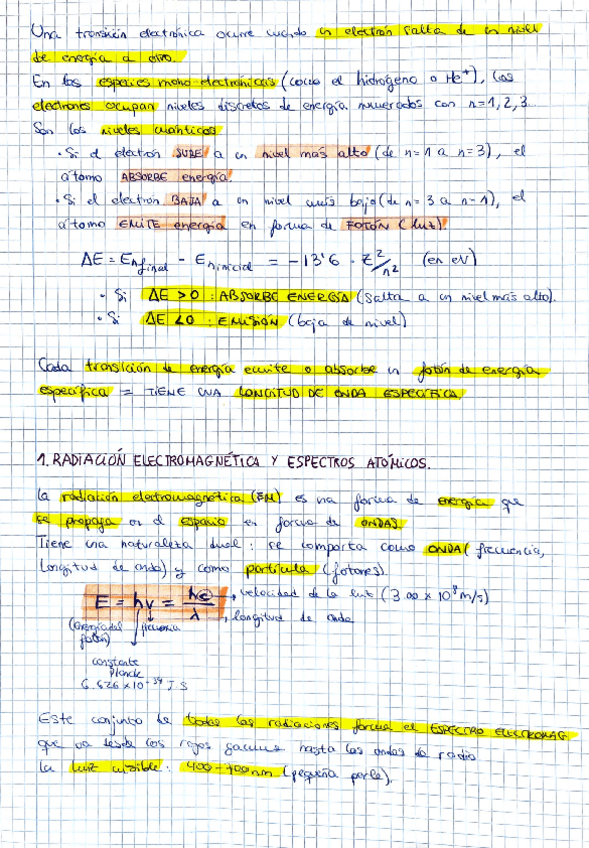 Una transición electrónica ocurre cuando un electrón salta de un nivel
de energía a otro.
En las especies mono electrónicas (como el hidrógeno o He⁺), los
electrones ocupan niveles discretos de energía numerados con n=1,2,3...
Son los niveles cuánticos
· Si el electrón SUBE a un nivel más alto (de n=1 a n=3), el
átomo ABSORBE energía.
· Si el electrón BAJA a un nivel más bajo (de n=3 a n=1), el
átomo EMITE energía en forma de FOTÓN (luz).
ΔE = En final - En inicial = -13'6 · Z²/n² (en eV)
· Si ΔE > 0 : ABSORBE ENERGÍA (Salta a un nivel más alto).
· Si ΔE < 0 : EMISIÓN (baja de nivel)
Cada transición de energía emite o absorbe un fotón de energía
específica = TIENE UNA LONGITUD DE ONDA ESPECÍFICA.
1. RADIACIÓN ELECTROMAGNÉTICA Y ESPECTROS ATÓMICOS.
La radiación electromagnética (EM) es una forma de energía que
se propaga en el espacio en forma de ONDAS.
Tiene una naturaleza dual: se comporta como ONDA (frecuencia,
longitud de onda) y como partícula (fotones).
E = hν = hc/λ
velocidad de la luz (3.00 x 10⁸ m/s)
longitud de onda
(energía del fotón)
frecuencia
constante
Planck
6.626 x 10⁻³⁴ J.S
Este conjunto de todas las radiaciones forma el ESPECTRO ELECTROMAG.
que va desde los rayos gamma hasta las ondas de radio
La luz visible: 400-700nm (pequeña parte).